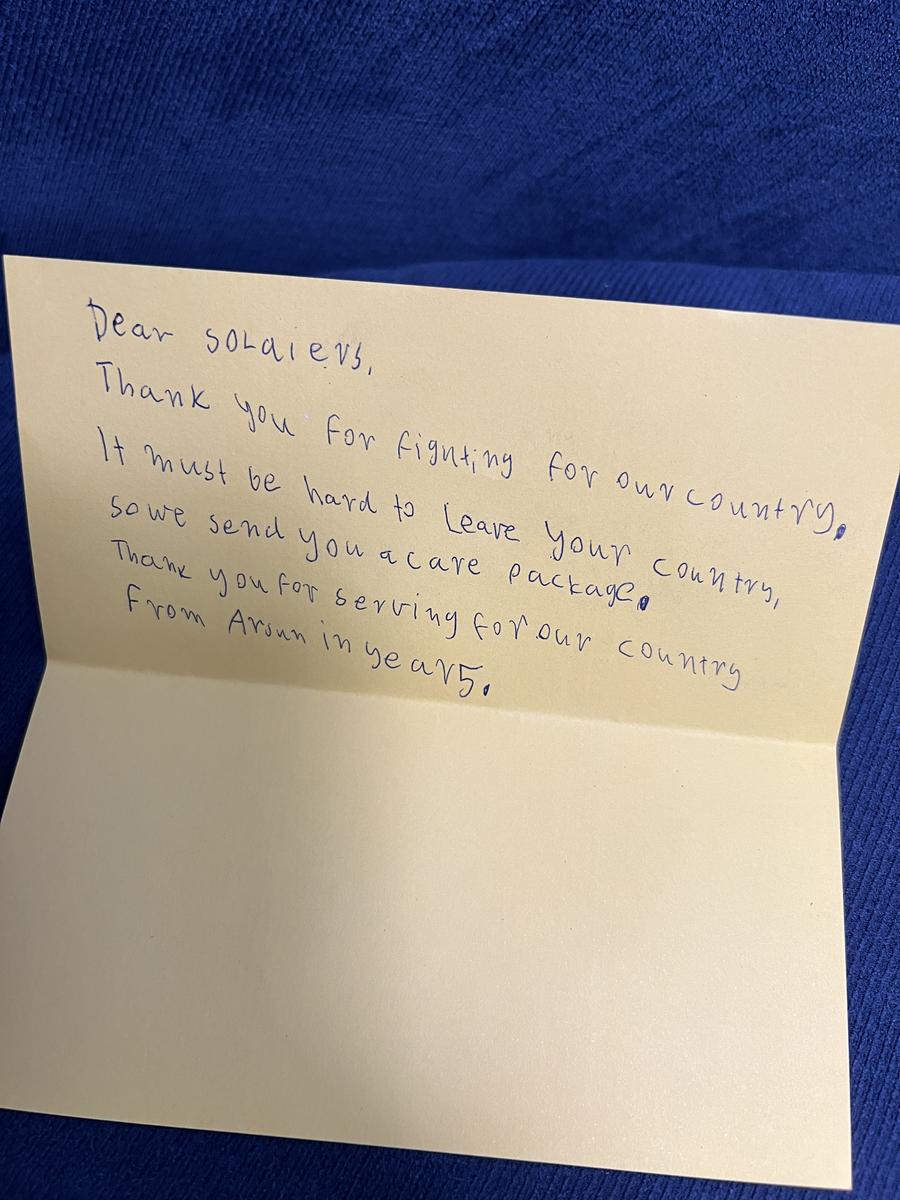 Dear soLdiers,
Thank you for fignting for our country.
It must be hard to Leave your country,
so we send you a care package.
Thank you for serving for our country
From Arjun in year 5.